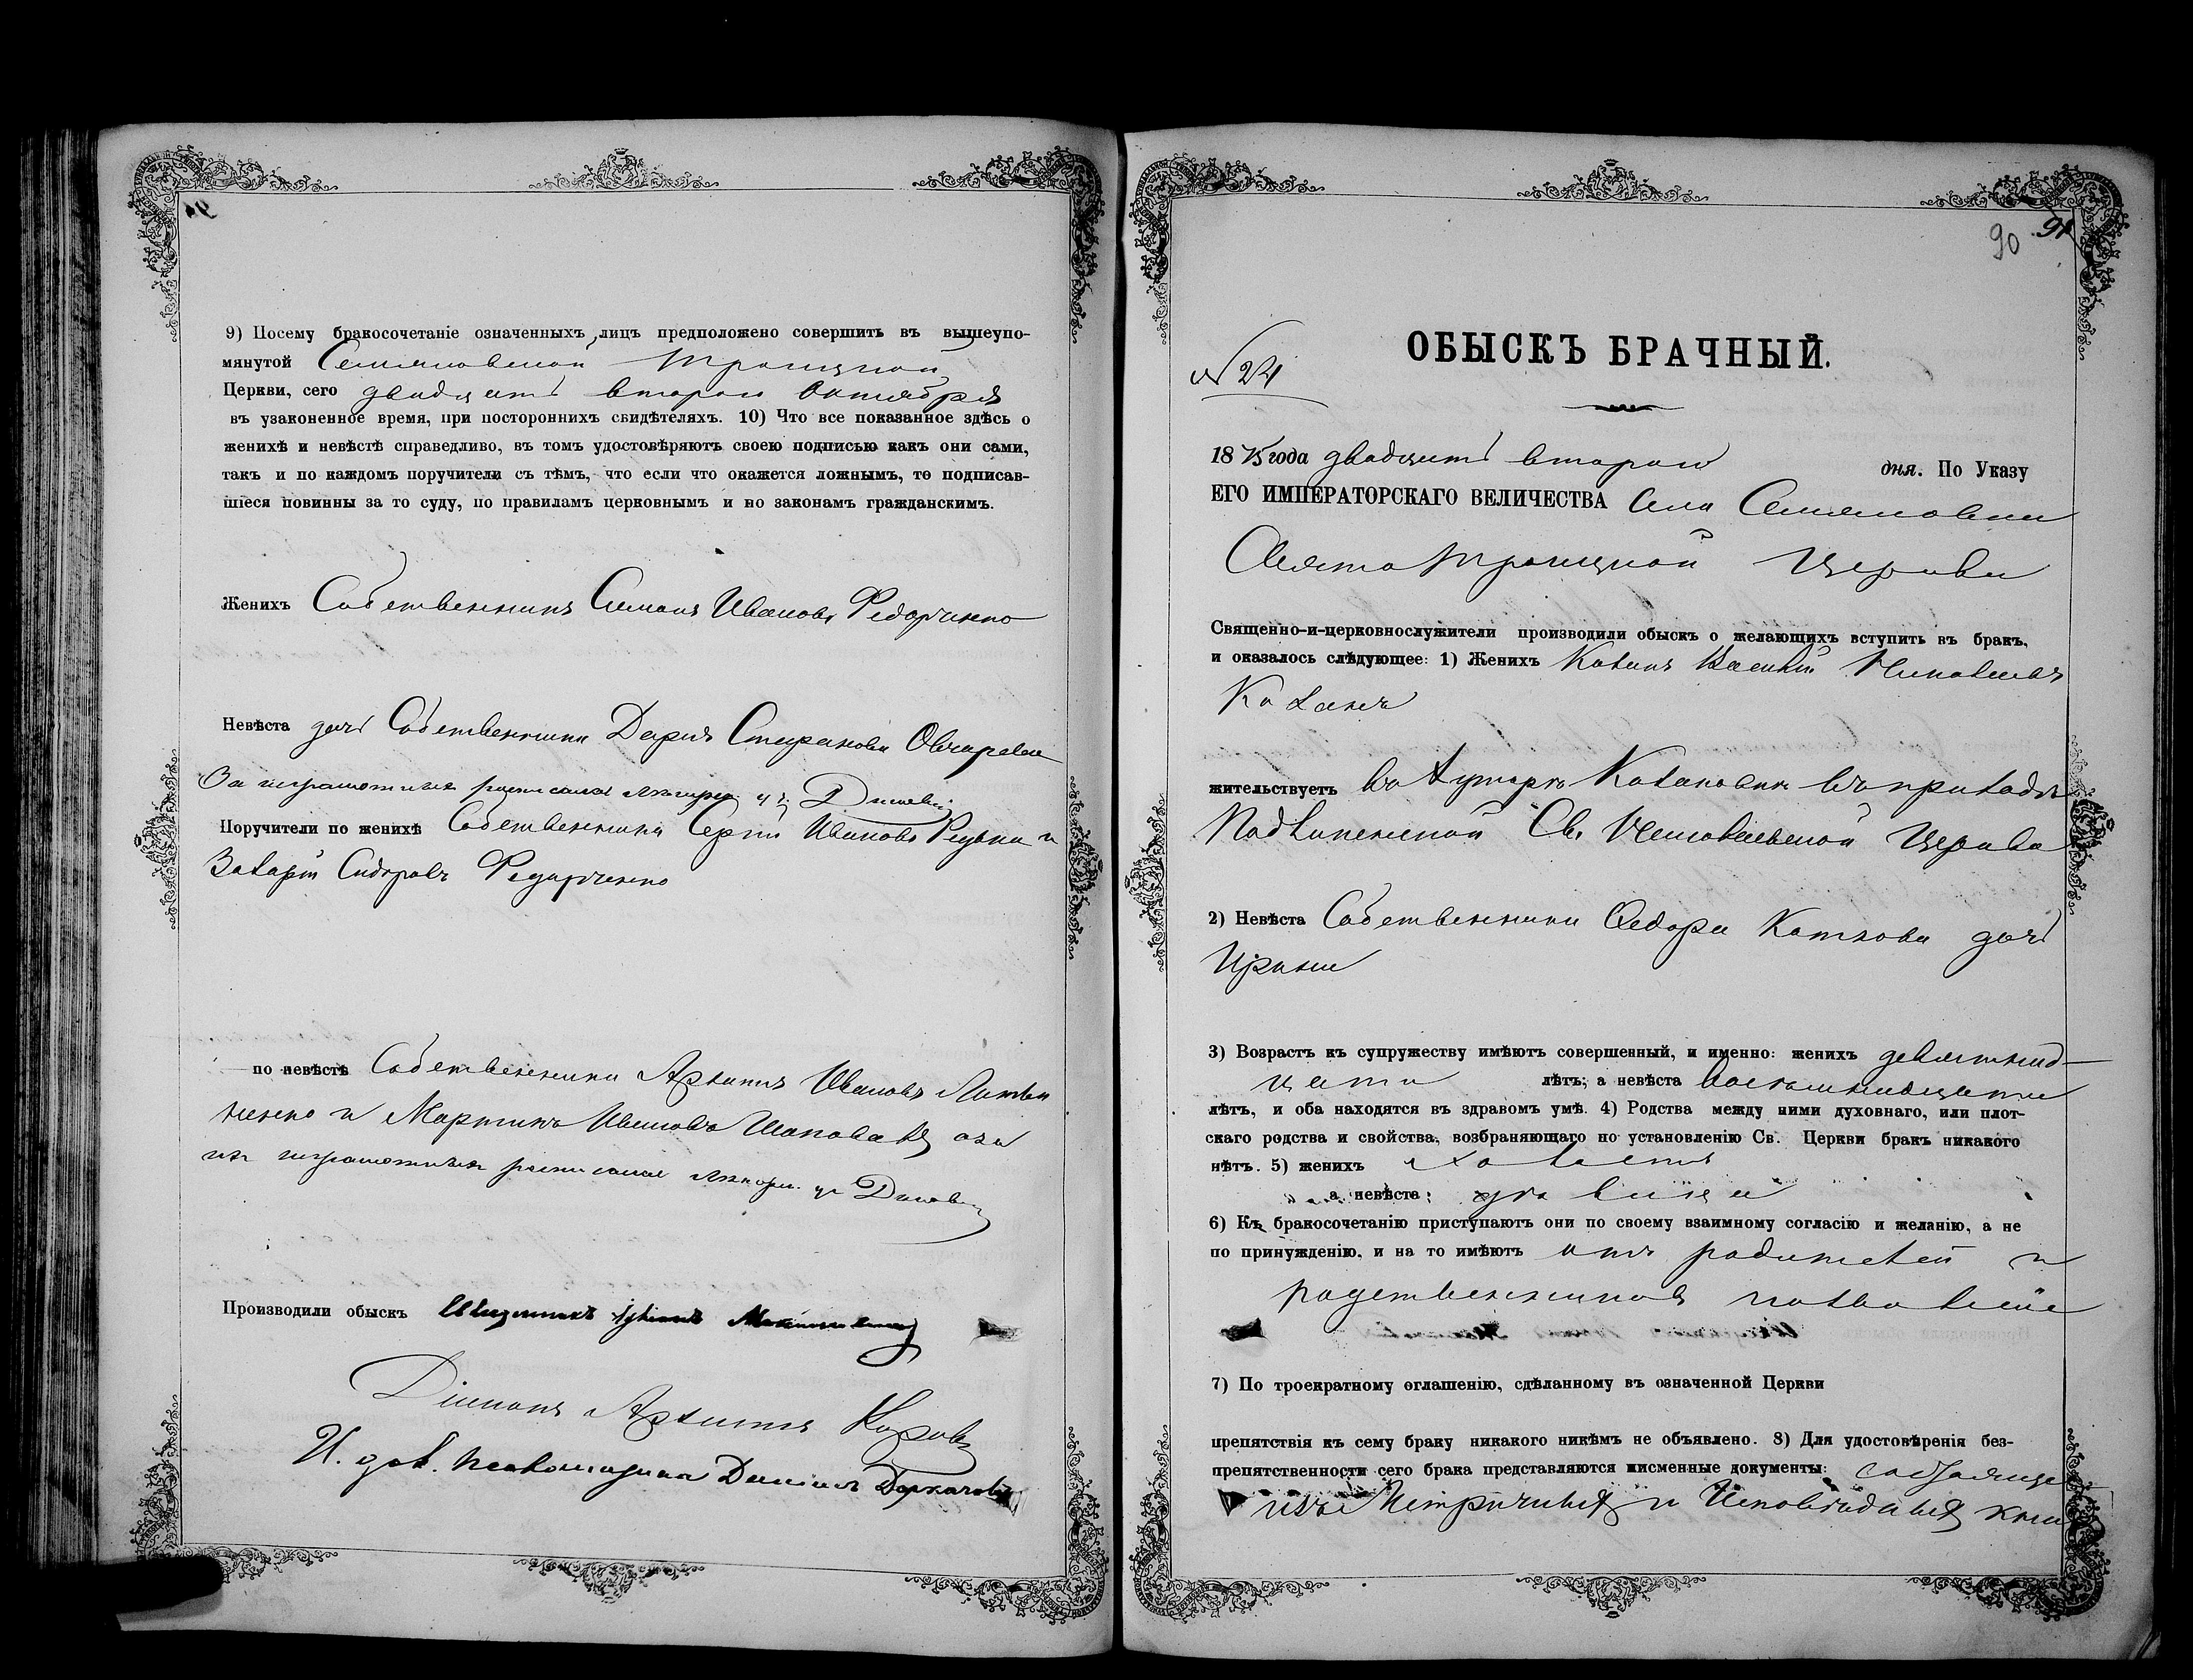 9) Посему бракосочетаніе означенныхъ лицъ предположено совершить въ вышеупо-
мянутой Семяновской Троицкой
Церкви, сего двадцять второго Октября
въ узаконенное время, при постороннихъ свидѣтеляхъ. 10) Что все показанное здѣсь о
женихѣ и невѣстѣ справедливо, въ томъ удостовѣряютъ своею подписью какъ они сами,
такъ и по каждомъ поручители съ тѣмъ, что если что окажется ложнымъ, то подписав-
шіеся повинны за то суду, по правиламъ церковнымъ и по законамъ гражданскимъ.
Женихъ Собственникъ Симонъ Ивановъ Федорченко
Невѣста дочь Собственника Дарія Стефанова Овчарева
За неграмотныхъ росписался
Поручители по женихѣ Собственники Сергій Ивановъ Редька и
Захарій Сидоровъ Федорченко
по невѣстѣ Собственники Архипъ Ивановъ Литви
ненко и Мартинъ Ивановъ Шаповал за
ихъ неграмотныхъ росписался
Производили обыскъ Священникъ
Діаконъ Архипъ
И. дол. псаломщика Даніилъ
90 91
ОБЫСКЪ БРАЧНЫЙ.
№ 24
1875 года двадцять второго дня. По Указу
ЕГО ИМПЕРАТОРСКАГО ВЕЛИЧЕСТВА села Семяновки
Свято Троицкой Церкви
Священно-и-церковнослужители производили обыскъ о желающихъ вступить въ бракъ,
и оказалось слѣдующее: 1) Женихъ Козакъ Василій Николаевъ
Коханъ
жительствуетъ въ хуторѣ Кохановкѣ въ приходѣ
Николаевской Церкви
2) Невѣста Собственника Федора Коткова дочь
Ирина
3) Возрастъ къ супружеству имѣютъ совершенный, и именно: женихъ девятнад-
цати лѣтъ; а невѣста восемнадцати
лѣтъ, и оба находятся въ здравомъ умѣ. 4) Родства между ними духовнаго, или плот-
скаго родства и свойства, возбраняющаго по установленію Св. Церкви бракъ никакого
нѣтъ. 5) женихъ холостъ
а невѣста: дѣвица
6) Къ бракосочетанію приступаютъ они по своему взаимному согласію и желанію, а не
по принужденію, и на то имѣютъ отъ родителей и
родственниковъ позволеніе
7) По троекратному оглашенію, сдѣланному въ означенной Церкви
препятствія къ сему браку никакого никѣмъ не объявлено. 8) Для удостовѣренія без-
препятственности сего брака представляются письменные документы:
изъ Метричныхъ и Исповѣдныхъ книг